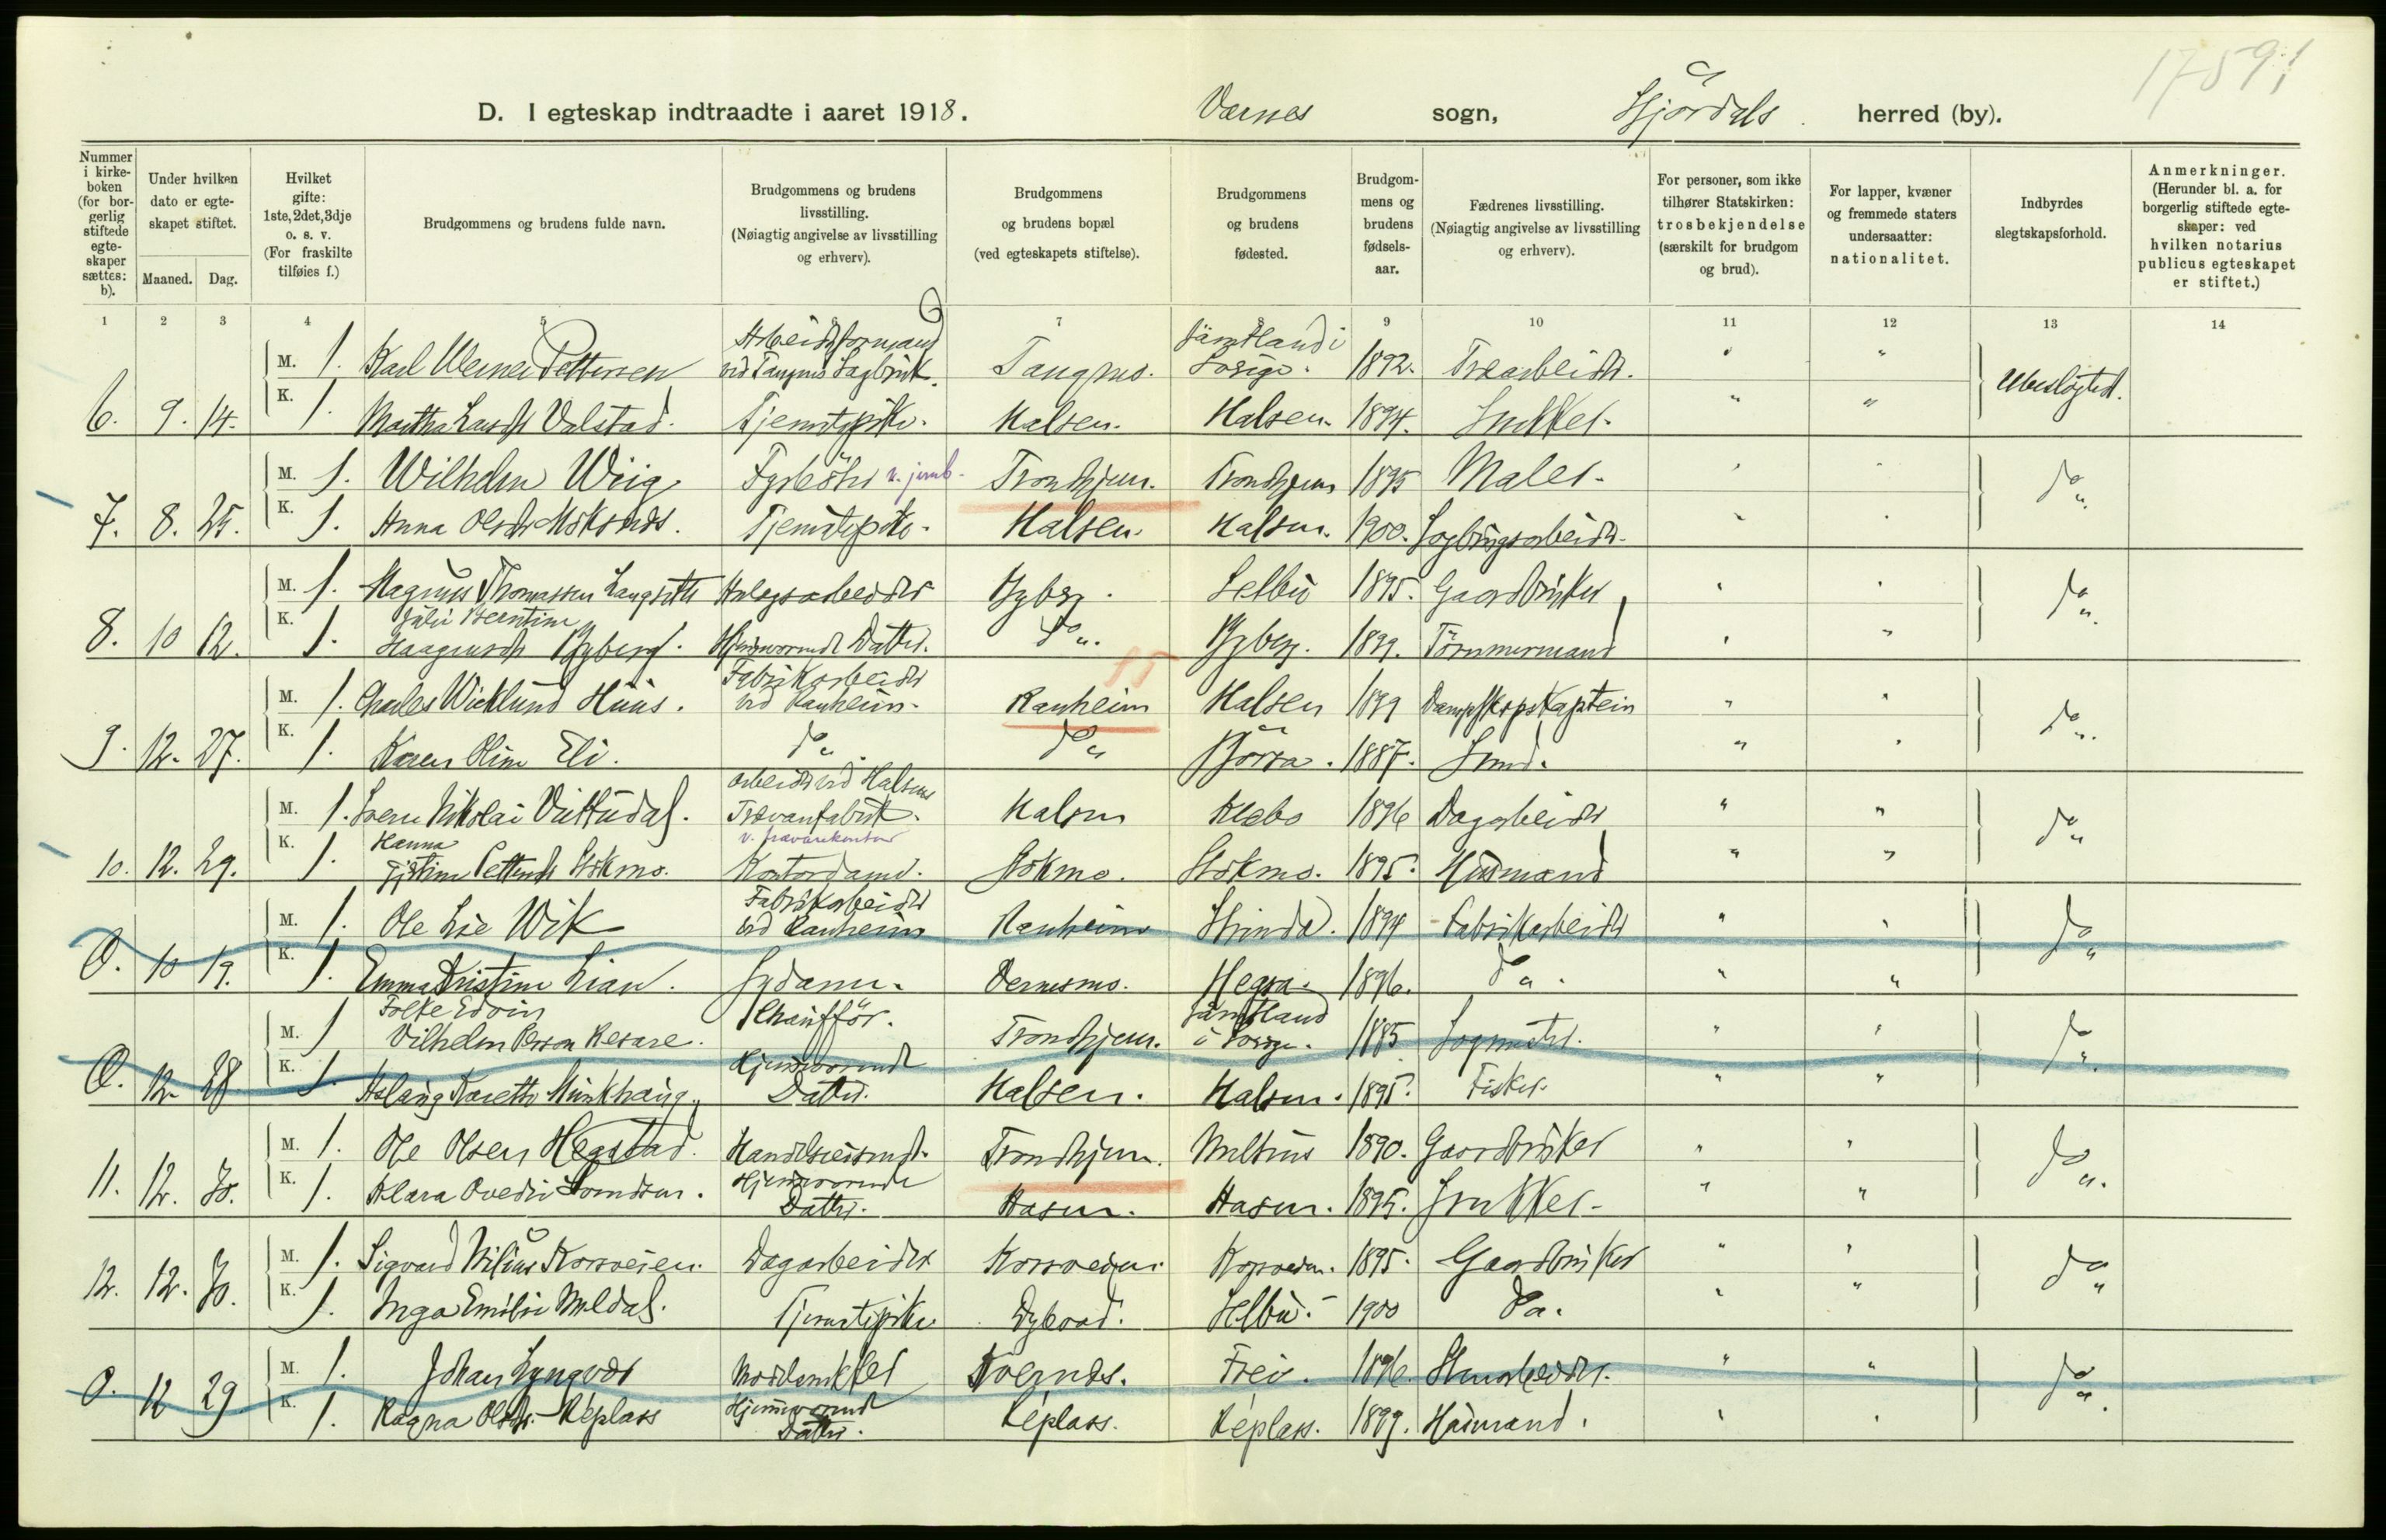 17591
D. I egteskap indtraadte i aaret 1918. Værnes sogn, Stjørdals herred (by).
Nummer i kirkeboken (for borgerlig stiftede egteskaper sættes: b).
Under hvilken dato er egteskapet stiftet.
Maaned. Dag.
Hvilket gifte: 1ste, 2det, 3dje o. s. v. (For fraskilte tilføies f.)
Brudgommens og brudens fulde navn.
Brudgommens og brudens livsstilling. (Nøiagtig angivelse av livsstilling og erhverv).
Brudgommens og brudens bopæl (ved egteskapets stiftelse).
Brudgommens og brudens fødested.
Brudgommens og brudens fødselsaar.
Fædrenes livsstilling. (Nøiagtig angivelse av livsstilling og erhverv).
For personer, som ikke tilhører Statskirken: trosbekjendelse (særskilt for brudgom og brud).
For lapper, kvæner og fremmede staters undersaatter: nationalitet.
Indbyrdes slegtskapsforhold.
Anmerkninger. (Herunder bl. a. for borgerlig stiftede egteskaper: ved hvilken notarius publicus egteskapet er stiftet.)
1 2 3 4 5 6 7 8 9 10 11 12 13 14
M. 1. Karl Werner Pettersen Arbeidsformand ved Tangmo Sagbruk. Tangmo. Jämtland i Sverige. 1892. Træarbeider. " "
6. 9. 14. K. 1. Martha Larsdt Valstad. Tjenestepike. Halsen. Halsen. 1894. Snekker. " " Ubeslegtet.
M. 1. Wilhelm Wiig Fyrbøter v. jernb. Trondhjem. Trondhjem 1895 Maler. " "
7. 8. 25. K. 1. Anna Olsdt Moksnes. Tjenestepike. Halsen. Halsen. 1900. Sagbrugsarbeider. " " Do "
M. 1. Magnus Thomassen Langseth Anlegsarbeider Bybrg. Selbu 1895. Gaardbruker " "
8. 10 12. K. 1. Julie Berntine Haagensdt Byberg. Hjemmeværende Datter. Do ". Bybrg. 1899. Tømmermand " " Do "
15
M. 1. Charles Wicklund Huus. Fabrikarbeider ved Ranheim. Ranheim Halsen 1899 Dampskipskaptein " "
9. 12. 27. K. 1. Karen Oline Eli. Do " Do " 1887. Smed. " " Do "
M. 1. Sverre Nikolai Vuttudal. Arbeider ved Halsens Trævarefabrik. Halsen Klæbo 1896 Dagarbeider " "
10. 12. 29. K. 1. Hanna Petterdt Stokmo. v. trævarekontor Kontordame. Stokmo. Stokmo. 1895. Husmand " " Do "
M. 1. Ole Lie Wik Fabrikarbeider ved Ranheim Ranheim Strinda. 1894 Fabrikarbeider " "
0. 10 19. K. 1. Emma Kristine Lian. Sydame. Vernesmo. Hegra. 1896. Do ". " " Do "
M. 1 Folke Edvin Vilhelm Person Resare. Chaufför. Trondhjem. Jämtland i Sverige. 1885 Sagmester. " "
0. 12. 28 K. 1. Aslaug Karette Munkhaug. Hjemmeværende Datter. Halsen. Halsen. 1895. Fisker. " " Do "
M. 1. Ole Olsen Hegstad. Handelsreisende. Trondhjem. Meldhus 1890. Gaardbruker " "
11. 12. 30. K. 1. Klara Ovedie Hjemmeværende Datter. Hasen. Hasen. 1895. Snekker. " " Do ".
M. 1. Sigvard Nilius Korsveien. Dagarbeider Korsveien. Korsveien. 1895. Gaardbruker " "
12. 12. 30. K. 1. Inga Emilie Meldal. Tjenestepike Dybvad. Selbu. 1900 Do ". " " Do "
M. 1. Johan Lyngved Modelsnekker Værnes. Frei. 1896. Stenarbeider. " "
0. 12 29 K. 1. Ragna Olsdt. Replass Hjemmeværende Datter. Replass. Replass. 1899. Husmand. " " Do "